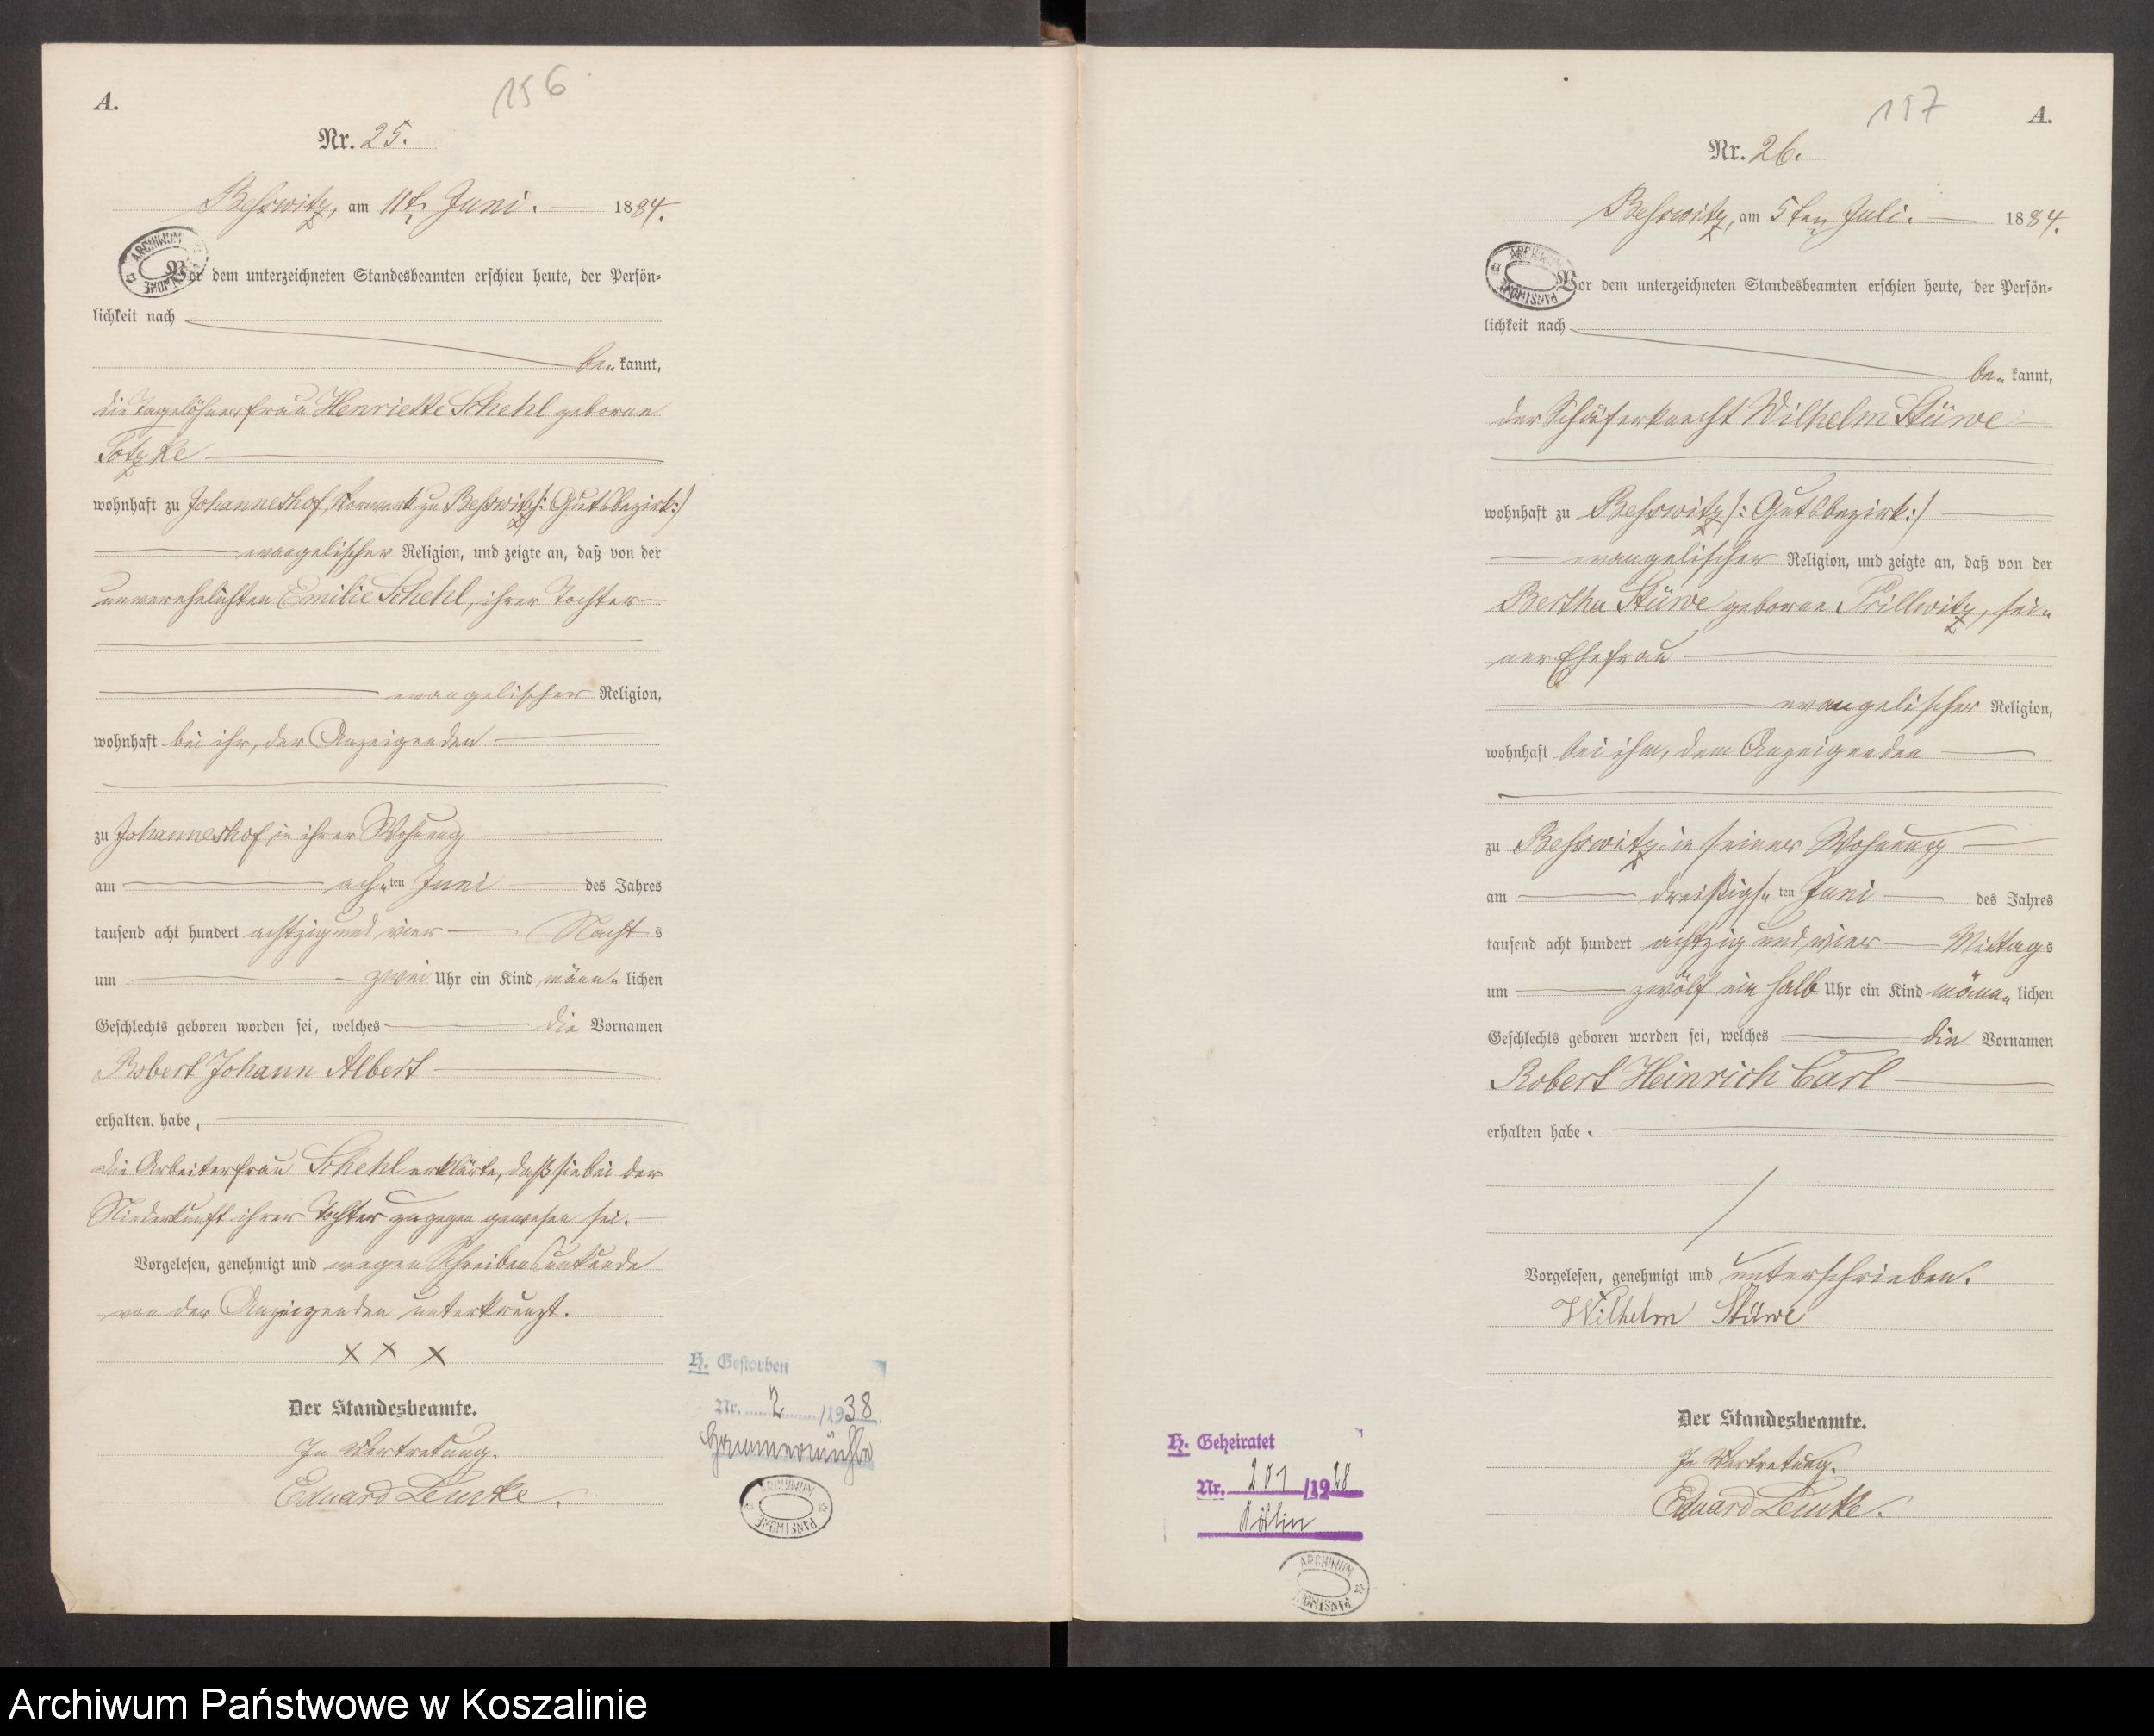 156
A.
Nr. 25.
Behrwitz, am 11t. Juni. 1884.
ARCHIWUM PAŃSTWOWE
Vor dem unterzeichneten Standesbeamten erschien heute, der Persön=
lichkeit nach
be=kannt,
die Tagelöhnerfrau Henriette Schehl geborne
Totzke
wohnhaft zu Johanneshof, Vorwerk zu /: Gutsbezirk :/
evangelischer Religion, und zeigte an, daß von der
unverehelichten Emilie Schehl, ihrer Tochter
evangelischer Religion,
wohnhaft bei ihr, der Anzeigenden
zu Johanneshof in ihrer Wohnung
am ach=ten Juni des Jahres
tausend acht hundert achtzig und vier Nacht s
um zwei Uhr ein Kind männ=lichen
Geschlechts geboren worden sei, welches die Vornamen
Robert Johann Albert
erhalten habe,
Die Arbeiterfrau Schehl erklärte, daß sie bei der
Niederkunft ihrer Tochter zugegen gewesen sei.
Vorgelesen, genehmigt und wegen Schreibensunkunde
von der Anzeigenden unterkreuzt.
X X X
Der Standesbeamte.
In Vertretung.
Eduard Lemke.
H. Gestorben
Nr. 2 /1938.
Hammermühle
ARCHIWUM PAŃSTWOWE
197
A.
Nr. 26.
am 5ten Juli. 1884.
ARCHIWUM PAŃSTWOWE
Vor dem unterzeichneten Standesbeamten erschien heute, der Persön=
lichkeit nach
be=kannt,
der Schäferknecht Wilhelm Stüwe
wohnhaft zu /: Gutsbezirk :/
evangelischer Religion, und zeigte an, daß von der
Bertha Stüwe geborne Prillwitz, sei=
ner Ehefrau
evangelischer Religion,
wohnhaft bei ihm, dem Anzeigenden
zu in seiner Wohnung
am dreißigs=ten Juni des Jahres
tausend acht hundert achtzig und vier Mittags
um zwölf ein halb Uhr ein Kind männ=lichen
Geschlechts geboren worden sei, welches die Vornamen
Robert Heinrich Carl
erhalten habe.
Vorgelesen, genehmigt und unterschrieben.
Wilhelm Stüwe
Der Standesbeamte.
In Vertretung.
Eduard Lemke.
H. Geheiratet
Nr. 201 /1928
Köslin
ARCHIWUM PAŃSTWOWE
Archiwum Państwowe w Koszalinie